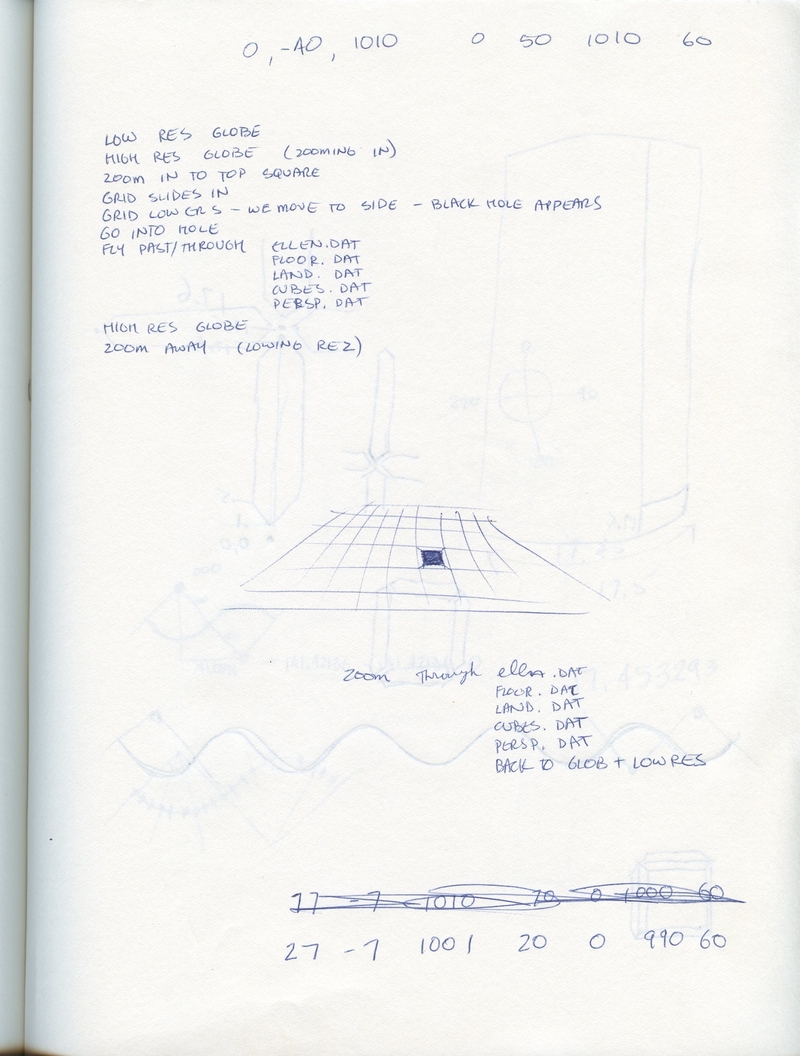 0, -40, 1010 0 50 1010 60
LOW RES GLOBE
HIGH RES GLOBE (ZOOMING IN)
ZOOM IN TO TOP SQUARE
GRID SLIDES IN
GRID LOWERS - WE MOVE TO SIDE - BLACK HOLE APPEARS
GO INTO HOLE
FLY PAST/THROUGH ELLEN.DAT
FLOOR. DAT
LAND. DAT
CUBES. DAT
PERSP. DAT
HIGH RES GLOBE
ZOOM AWAY (LOWING REZ)
ZOOM Through ellen.DAT
FLOOR. DAT
LAND. DAT
CUBES. DAT
PERSP. DAT
BACK TO GLOB + LOW RES
-7 1010 0 1000 60
27 -7 1001 20 0 990 60